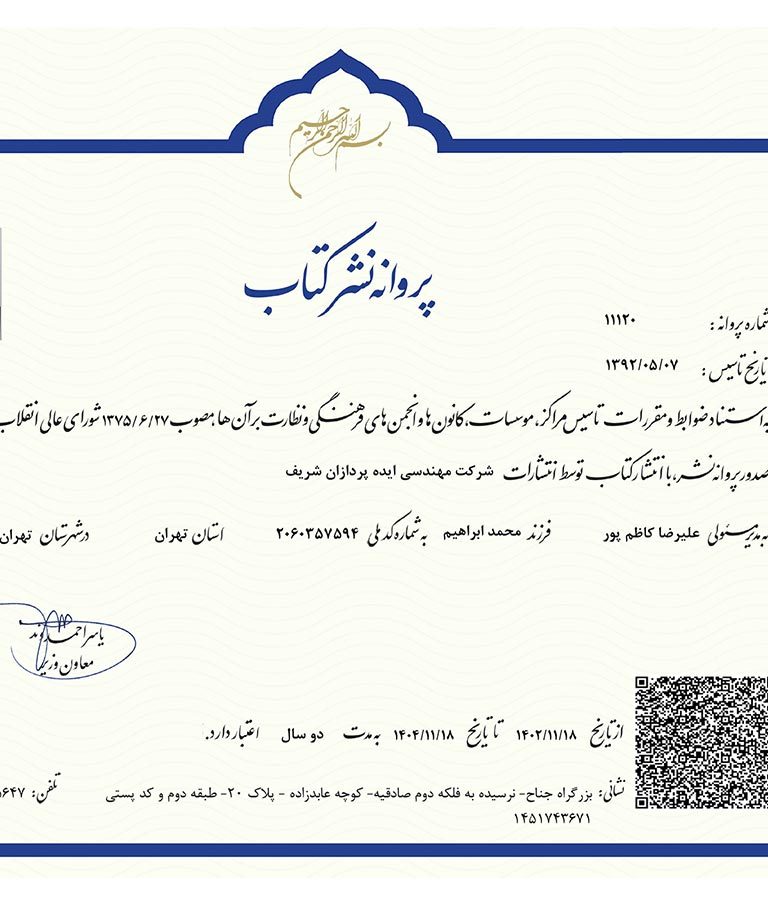 بسم الله الرحمن الرحیم
پروانه نشر کتاب
شماره پروانه: ۱۱۱۲۰
تاریخ تاسیس: ۱۳۹۲/۰۵/۰۷
به استناد ضوابط و مقررات تاسیس مراکز، موسسات، کانون ها و انجمن های فرهنگی و نظارت بر آن ها مصوب ۱۳۷۵/۶/۲۷ شورای عالی انقلاب
صدور پروانه نشر، با انتشار کتاب توسط انتشارات شرکت مهندسی ایده پردازان شریف
به مدیر مسئولی علیرضا کاظم پور فرزند محمد ابراهیم به شماره کد ملی ۲۰۶۰۳۵۷۵۹۴ استان تهران در شهرستان تهران
یاسر احمدوند
معاون وزیر
از تاریخ ۱۴۰۲/۱۱/۱۸ تا تاریخ ۱۴۰۴/۱۱/۱۸ به مدت دو سال اعتبار دارد.
نشانی: بزرگراه جناح- نرسیده به فلکه دوم صادقیه- کوچه عابدزاده - پلاک ۲۰- طبقه دوم و کد پستی تلفن: ۶۴۷
۱۴۵۱۷۴۳۶۷۱